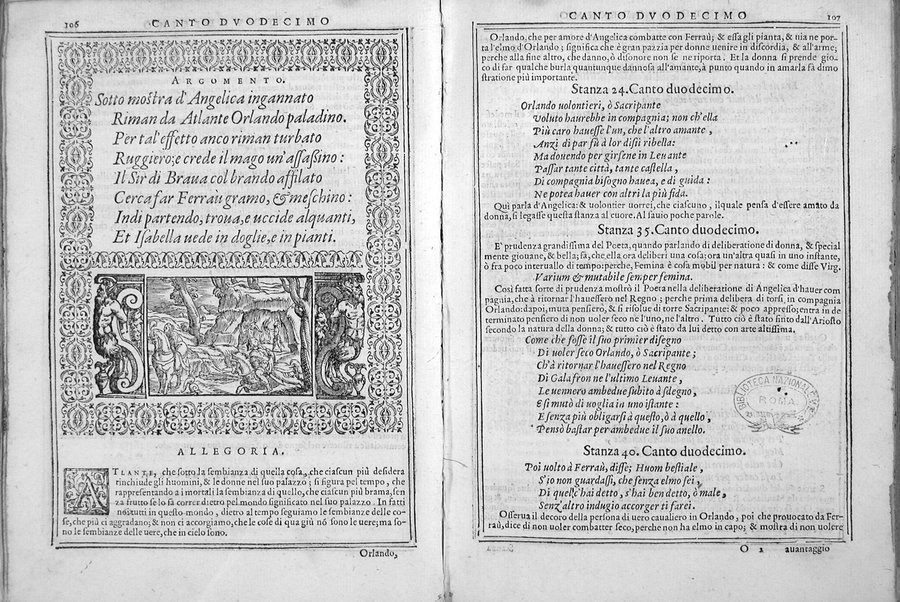 106 CANTO DVODECIMO
ARGOMENTO.
Sotto mostra d'Angelica ingannato
Riman da Atlante Orlando paladino.
Per tal'effetto anco riman turbato
Ruggiero; e crede il mago un'assassino:
Il Sir di Braua col brando affilato
Cerca far Ferraù gramo, & meschino:
Indi partendo, troua, e uccide alquanti,
Et Isabella uede in doglie, e in pianti.
ALLEGORIA.
ATLANTE, che sotto la sembianza di quella cosa, che ciascun più desidera
rinchiude gli huomini, & le donne nel suo palazzo; si figura pel tempo, che
rappresentando a i mortali la sembianza di quello, che ciascun più brama, sen
za frutto se lo fà correr dietro pel mondo significato nel suo palazzo. In fatti
noi tutti in questo mondo, dietro al tempo seguiamo le sembianze delle co-
se, che più ci aggradano; & non ci accorgiamo, che le cose di qua giù nō sono le uere; ma so-
no le sembianze delle uere, che in cielo sono.
Orlando,
CANTO DVODECIMO 107
Orlando, che per amore d'Angelica combatte con Ferraù; & essa gli pianta, & uia ne por-
ta l'elmo d'Orlando; significa che è gran pazzia per donne uenire in discordia, & all'arme;
perche alla fine altro, che danno, ò disonore non se ne riporta. Et la donna si prende gio-
co di far qualche burla quantunque dannosa all'amante, à punto quando in amarla fà dimo
stratione più importante.
Stanza 24. Canto duodecimo.
Orlando uolontieri, ò Sacripante
Voluto haurebbe in compagnia; non ch'ella
Più caro hauesse l'un, che l'altro amante,
Anzi di par fù à lor disii ribella:
Ma douendo per girsene in Leuante
Passar tante città, tante castella,
Di compagnia bisogno hauea, e di guida:
Ne potea hauer con altri la più fida.
Quì parla d'Angelica: & uolontier uorrei, che ciascuno, il quale pensa d'essere amato da
donna, si legasse questa stanza al cuore. Al sauio poche parole.
Stanza 35. Canto duodecimo.
E' prudenza grandissima del Poeta, quando parlando di deliberatione di donna, & special
mente giouane, & bella; fà, che ella ora deliberi una cosa; ora un'altra quasi in uno instante,
ò fra poco interuallo di tempo: perche, Femina è cosa mobil per natura: & come disse Virg.
Varium & mutabile semper femina.
Così fatta sorte di prudenza mostrò il Poeta nella deliberatione di Angelica d'hauer com
pagnia, che à ritornar l'hauessero nel Regno; perche prima delibera di torsi, in compagnia
Orlando: dapoi, muta pensiero, & si risolue di torre Sacripante: & poco appresso; entra in de
terminato pensiero di non uoler seco ne l'uno, ne l'altro. Tutto ciò è stato finto dall'Ariosto
secondo la natura della donna; & tutto ciò è stato da lui detto con arte altissima.
Come che fosse il suo primier disegno
Di uoler seco Orlando, ò Sacripante;
Ch'à ritornar l'hauessero nel Regno
Di Galafron ne l'ultimo Leuante,
Le uennero ambedue subito à sdegno,
E si mutò di uoglia in uno istante:
E senza più obligarsi à questo, ò à quello,
Pensò bastar per ambedue il suo anello.
BIBLIOTECA NAZIONALE
ROMA
Stanza 40. Canto duodecimo.
Poi uolto à Ferraù, disse; Huom bestiale,
S'io non guardassi, che senza elmo sei,
Di quel c'hai detto, s'hai ben detto, ò male,
Senz'altro indugio accorger ti farei.
Osserua il decoro della persona di uero caualiero in Orlando, poi che prouocato da Fer-
raù, dice di non uoler combatter seco, perche non ha elmo in capo; & mostra di non uolere
O 2 auantaggio